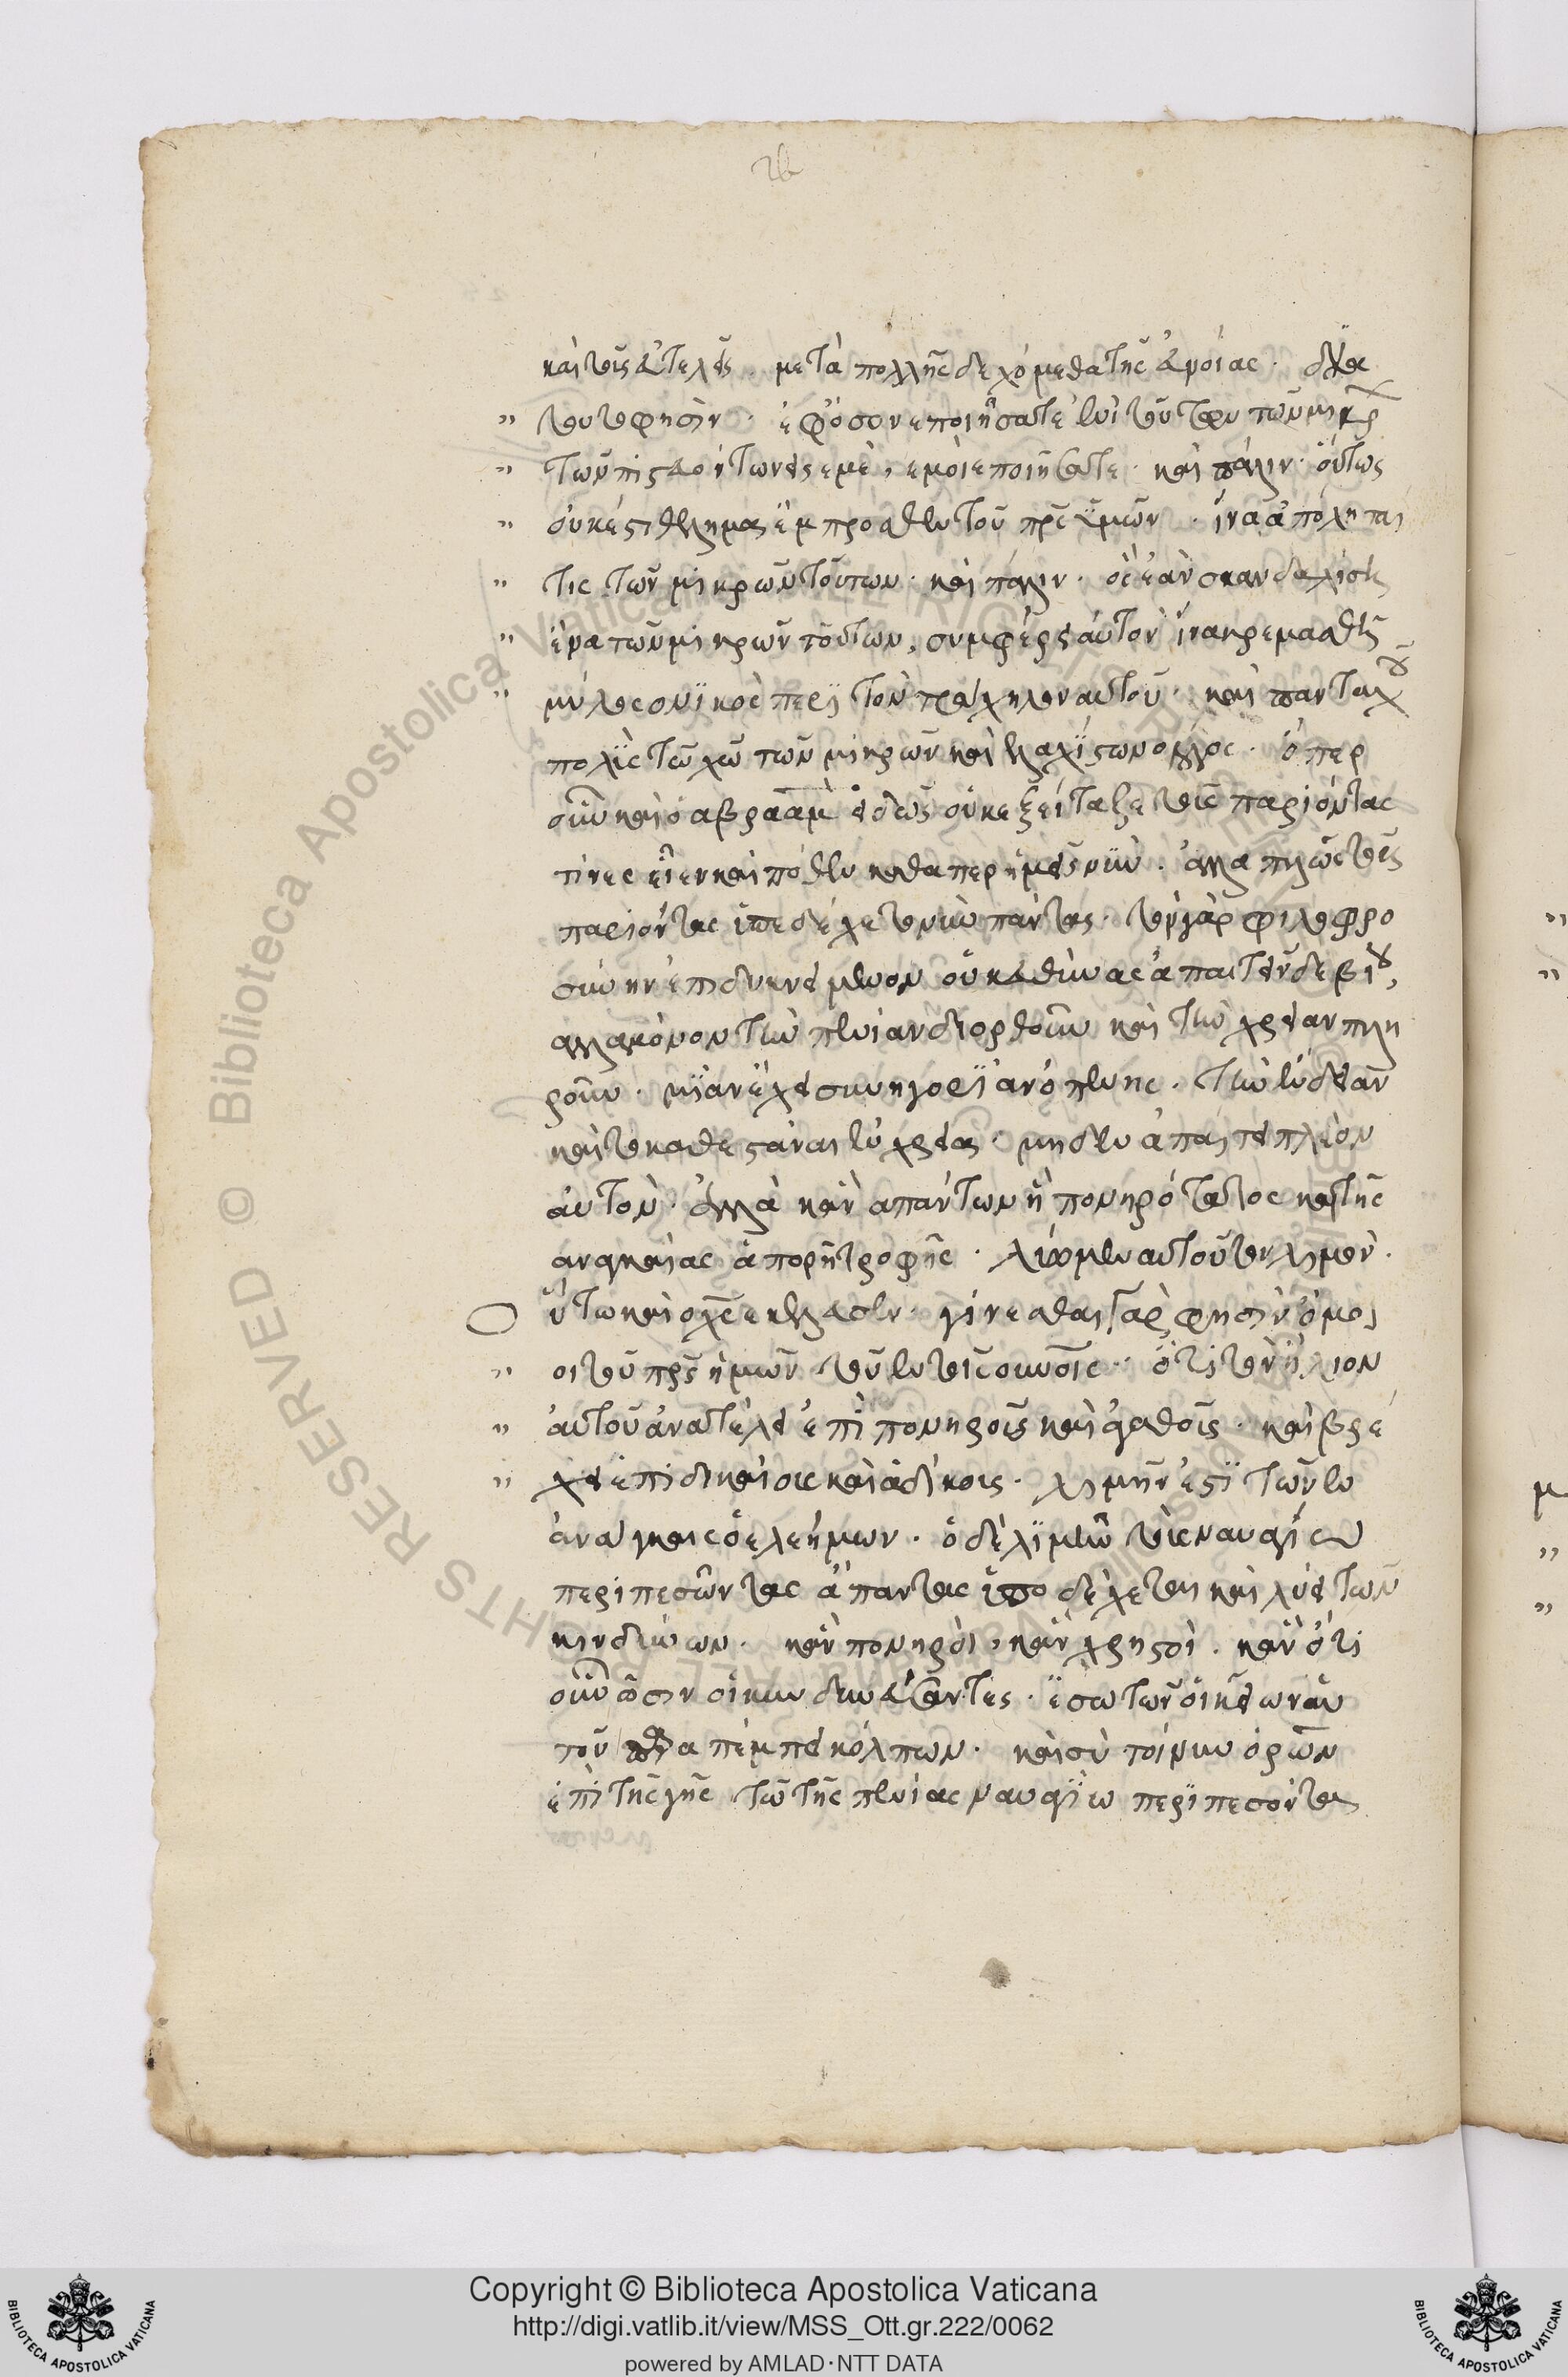 καὶ τοὺς εὐτελεῖς. μετὰ πολλῆς δεχόμεθα τῆς εὐνοίας. διὰ
τοῦτο φησὶν. ἐφόσον ἐποιήσατε ἑνὶ τούτων τῶν μικρ
τῶν πιστευόντων εἰς ἐμὲ, ἐμοὶ ἐποιήσατε. καὶ πάλιν. οὕτως
οὐκ ἔστι θέλημα ἔμπροσθεν τοῦ πρς ὑμῶν. ἵνα ἀπόληται
τὶς τῶν μικρῶν τούτων. καὶ πάλιν. ὃς ἐὰν σκανδαλίση
ἕνα τῶν μικρῶν τούτων, συμφέρει αὐτὸν ἵνα κρεμασθῆ
μύλος ονϊκὸς περὶ τὸν τράχηλον αυτοῦ. καὶ πανταχοῦ
πολὺς τῶ χῶ τῶν μικρῶν καὶ ἐλαχίστων ὁ λόγος. ὅπερ
οὖν καὶ ὁ αβραὰμ εἰδὼς οὐκ εξήταζε τοὺς παριόντας
τίνες εἶεν καὶ πόθεν καθάπερ ἡμεῖς νῦν. ἀλλα πλῶς τοὺς
παριόντας ὑπεδέχετο νῦν πάντας. τὸν γὰρ φιλοφρο
σύνην ἐπιδεικνύμενον οὐκ εὐθύνας ἀπαιτεῖν δεῖ βίου,
αλλαμόνον τὴν πενίαν διορθοῦν καὶ τὴν χρείαν πλη
ροῦν. μίαν ἔχει συνηγορίαν ὁ πένης. τὴν ἔνδειαν
καὶ τὸ καθεστάναι ἐν χρεία. μηδὲν ἀπαίτει πλέον
αὐτὸν. ἀλλὰ κἂν απάντων ἦ πονηρότατος καὶ τῆς
αναγκαίας ἀπορῆ τροφῆς. λύσωμεν αυτοῦ τὸν λιμὸν.
οὕτω καὶ ο χς εκέλευσεν. γίνεσθαι γὰρ φησὶν ὅμοι
οι τοῦ πρς ἡμῶν τοῦ ἐν τοῖς οὐνοῖς. ὅτι τὸν ἥλιον
ἀυτοῦ ἀνατέλει ἐπὶ πονηροὺς καὶ ἀγαθοὺς. καὶ βρέ
χει ἐπὶ δικαίους καὶ ἀδίκους. λιμὴν ἐστὶ τῶν ἐν
ἀνάγκαις ὁ ἐλεήμων. ὁ δὲ λιμὴν τοὺς ναυαγίω
περιπεσόντας ἅπαντας ὑποδέχεται καὶ λύει τῶν
κινδύνων. κἂν πονηροὶ, κἂν χρηστοὶ. κἂν ὅτι
οὖν ὦσιν οἱ κινδυνεύσαντες. ἔσω τῶν οἰκείων αὐ
τοὺς παραπέμπει κόλπων. καὶ σὺ τοίνυν ὁρῶν
ἐπὶ τῆς γῆς τῶ τῆς πενίας ναυαγίω περιπεσόντα
Copyright © Biblioteca Apostolica Vaticana
http://digi.vatlib.it/view/MSS_Ott.gr.222/0062
powered by AMLAD·NTT DATA